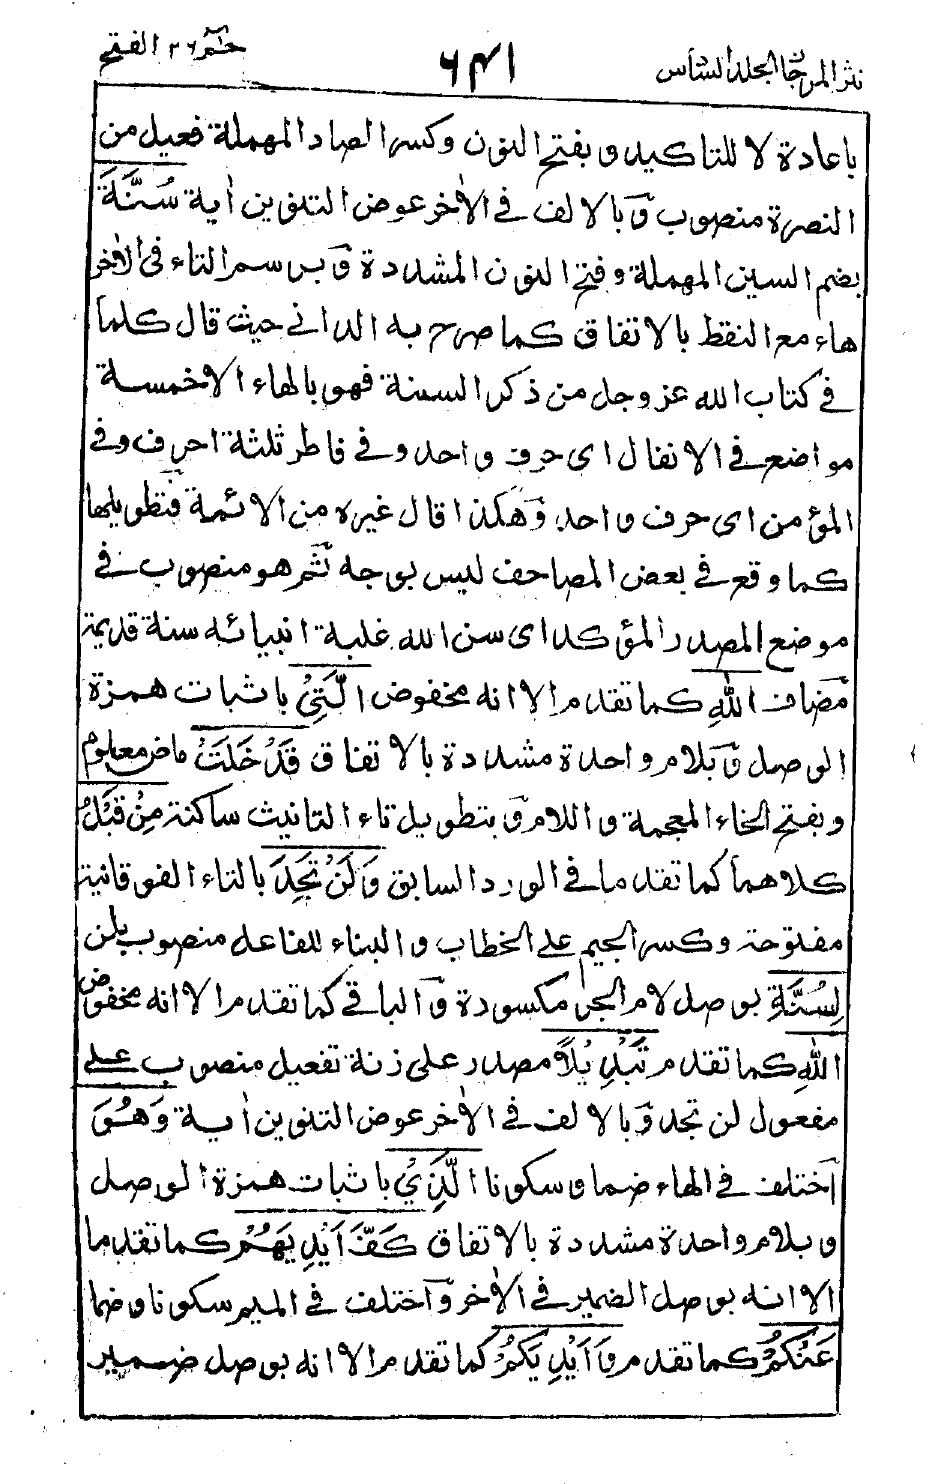 نثر المرجان المجلد السادس ٦٤١ حٰمٓ ٢٦ الفتح
باعادة لا للتاكيد و بفتح النون و كسر الصاد المهملة فعيل من
النصرة منصوب و بالالف في الاٰخر عوض التنوين اٰية سُنَّةَ
بضم السين المهملة و فتح النون المشددة و برسم التاء في الاٰخر
هاء مع النقط بالاتفاق كما صرح به الداني حيث قال كلما
في كتاب الله عز وجل من ذكر السنة فهو بالهاء الا خمسة
مواضع في الانفال اى حرف واحد و في فاطر ثلثة احرف و في
المؤمن اى حرف واحد و هكذا قال غيره من الائمة فتطويلها
كما وقع في بعض المصاحف ليس بوجه ثم هو منصوب في
موضع المصدر المؤكد اى سن الله غلبة انبيائه سنة قديمة
مضاف اللهِ كما تقدم الا انه مخفوض الَّتِيْ باثبات همزة
الوصل و بلام واحدة مشددة بالاتفاق قَدْ خَلَتْ ماض معلوم
و بفتح الخاء المعجمة و اللام و بتطويل تاء التانيث ساكنة مِنْ قَبْلُ
كلاهما كما تقدما في الورد السابق وَلَنْ تَجِدَ بالتاء الفوقانية
مفتوحة و كسر الجيم على الخطاب و البناء للفاعل منصوب بلن
لِسُنَّةِ بوصل لام الجر مكسورة و الباقي كما تقدم الا انه مخفوض
اللهِ كما تقدم تَبْدِيْلًا مصدر على زنة تفعيل منصوب على
مفعول لن تجد و بالالف في الاٰخر عوض التنوين اٰية وَهُوَ
اختلف في الهاء ضما و سكونا الَّذِيْ باثبات همزة الوصل
و بلام واحدة مشددة بالاتفاق كَفَّ اَيْدِيَهُمْ كما تقدما
الا انه بوصل الضمير في الاٰخر و اختلف في الميم سكونا و ضما
عَنْكُمْ كما تقدم وَ اَيْدِيَكُمْ كما تقدم الا انه بوصل ضمير